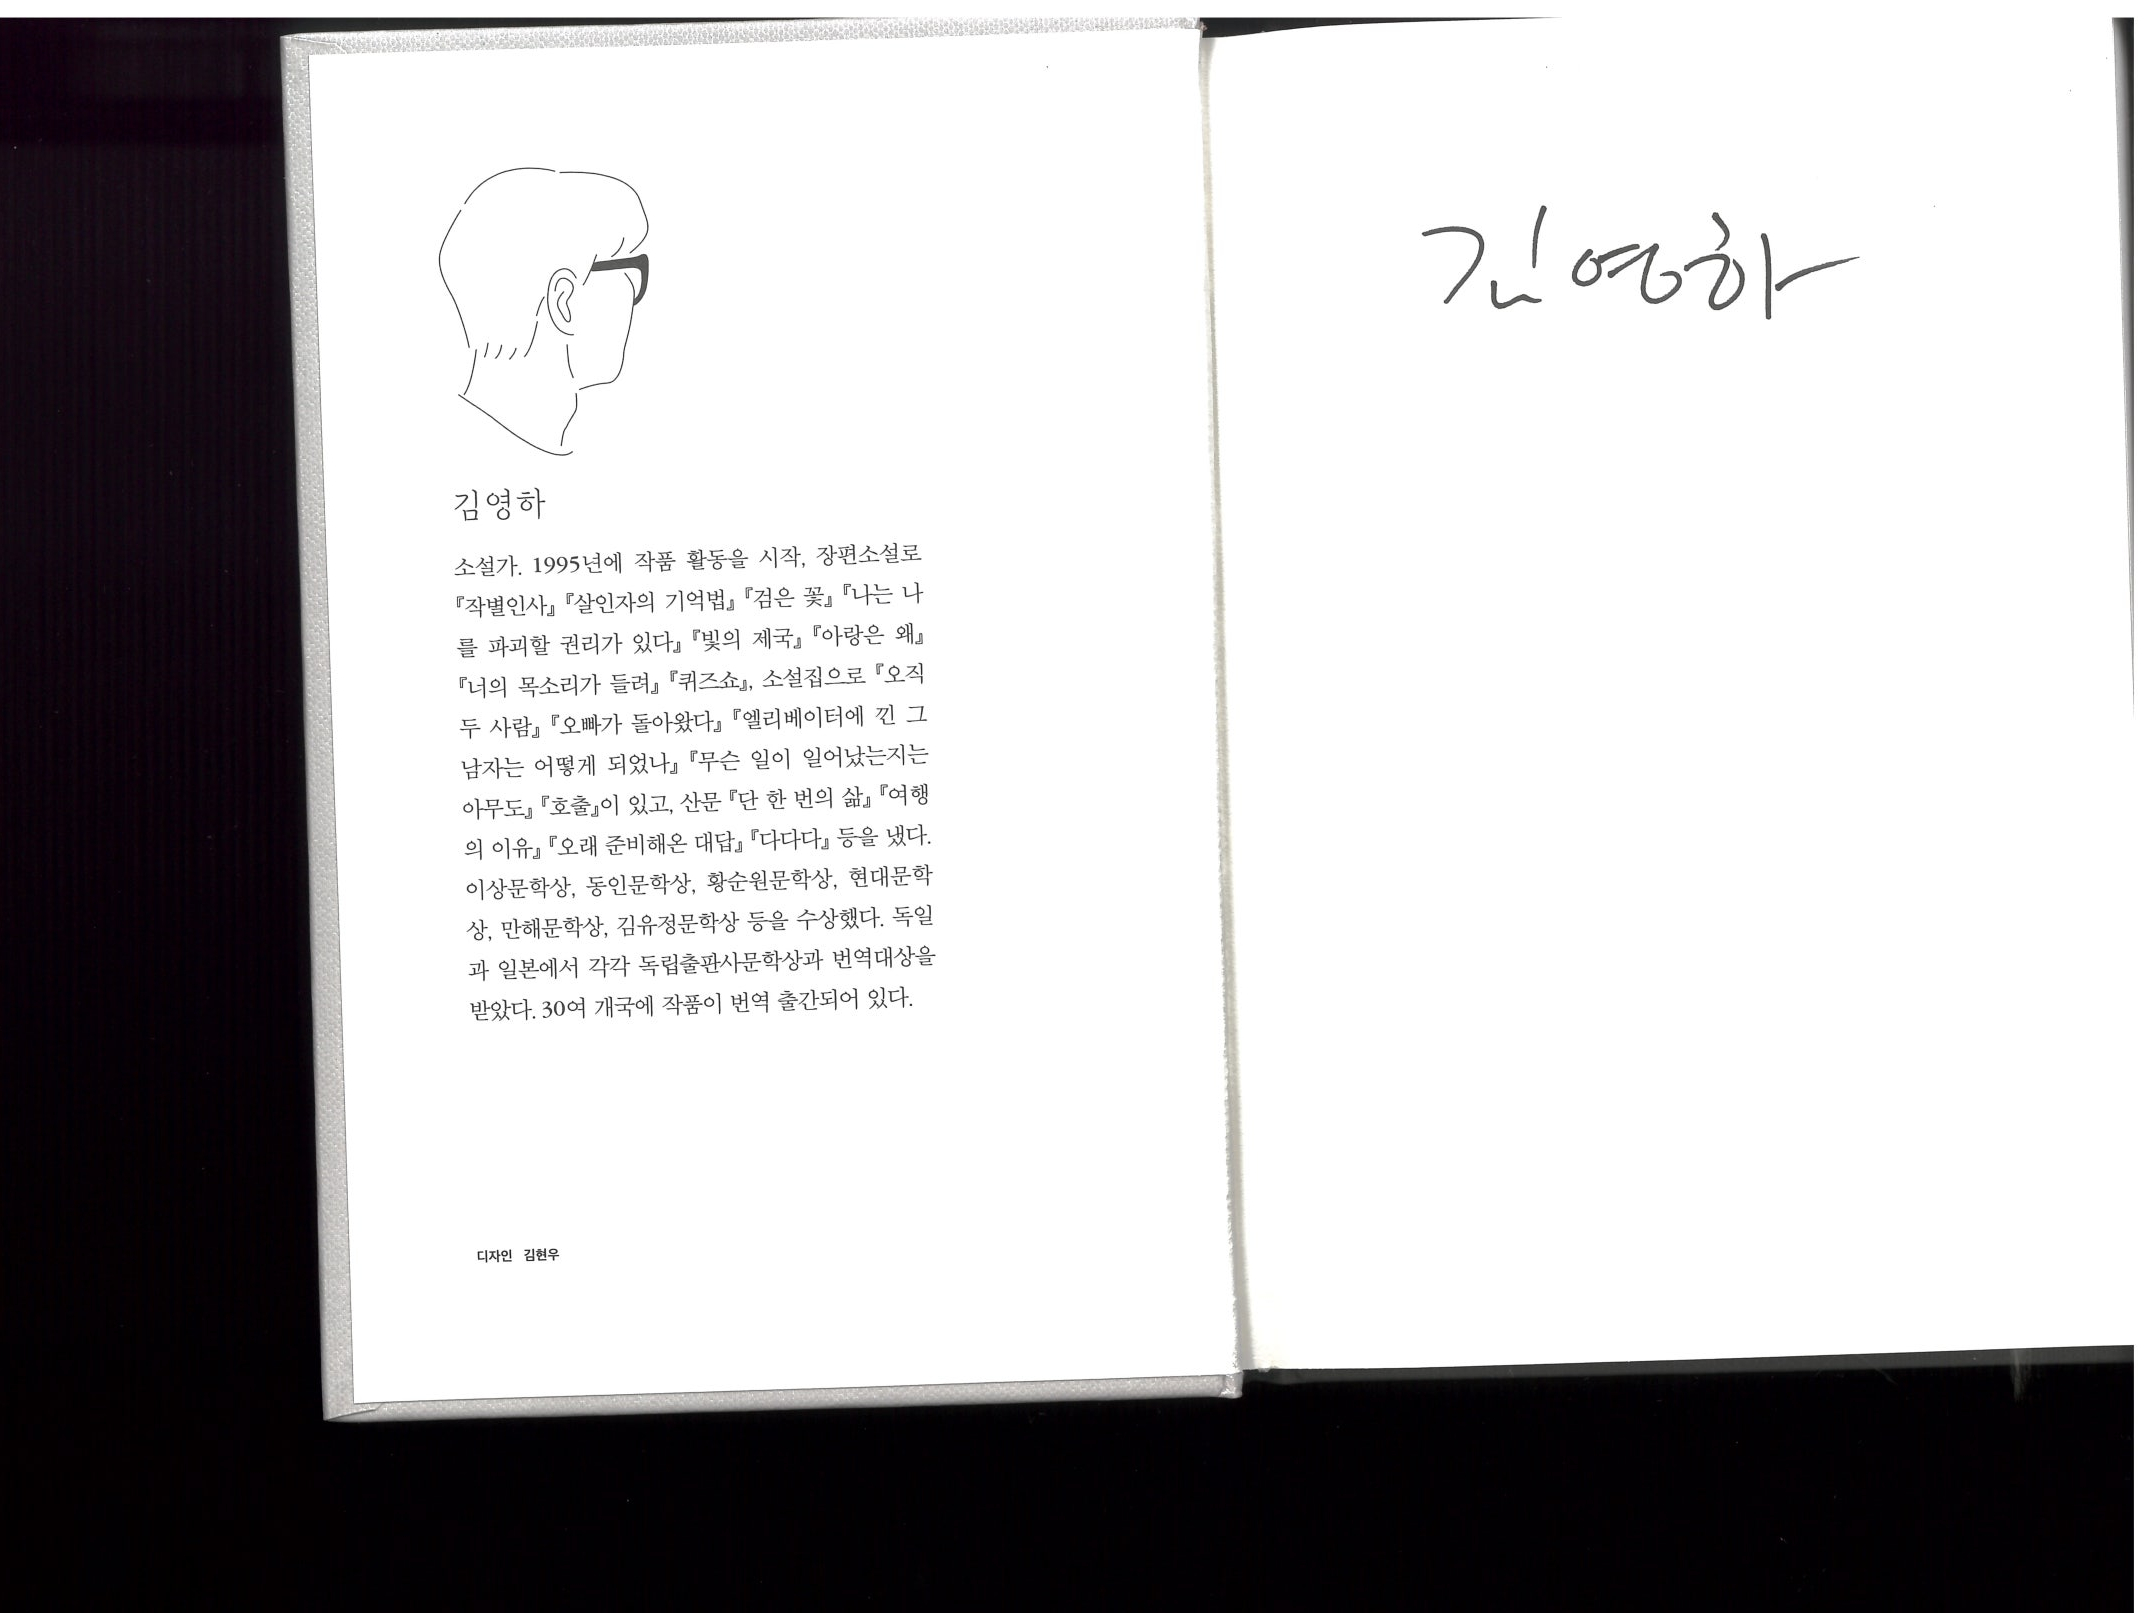 김영하
소설가. 1995년에 작품 활동을 시작, 장편소설로
『작별인사』『살인자의 기억법』『검은 꽃』『나는 나
를 파괴할 권리가 있다』『빛의 제국』『아랑은 왜』
『너의 목소리가 들려』『퀴즈쇼』, 소설집으로 『오직
두 사람』『오빠가 돌아왔다』『엘리베이터에 낀 그
남자는 어떻게 되었나』『무슨 일이 일어났는지는
아무도』『호출』이 있고, 산문 『단 한 번의 삶』『여행
의 이유』『오래 준비해온 대답』『다다다』 등을 냈다.
이상문학상, 동인문학상, 황순원문학상, 현대문학
상, 만해문학상, 김유정문학상 등을 수상했다. 독일
과 일본에서 각각 독립출판사문학상과 번역대상을
받았다. 30여 개국에 작품이 번역 출간되어 있다.
디자인 김현우
김영하